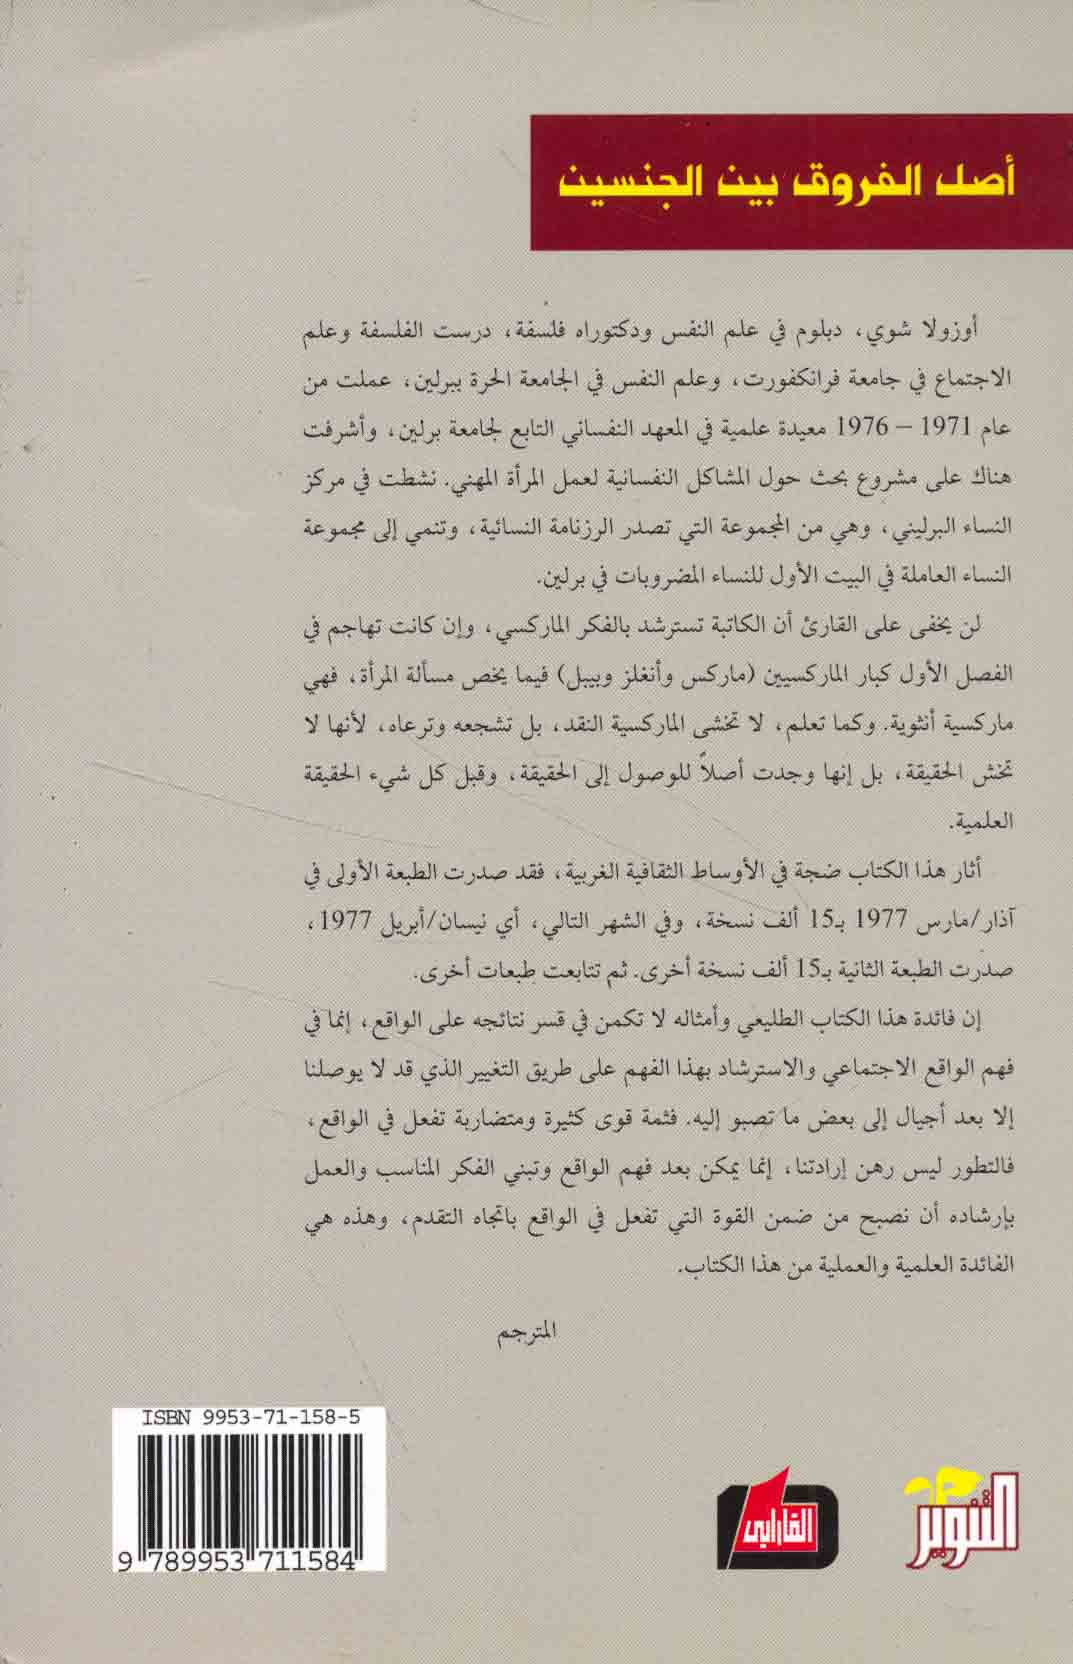 أصل الفروق بين الجنسين
أوزولا شوي، دبلوم في علم النفس ودكتوراه فلسفة، درست الفلسفة وعلم
الاجتماع في جامعة فرانكفورت، وعلم النفس في الجامعة الحرة ببرلين، عملت من
عام 1971 – 1976 معيدة علمية في المعهد النفساني التابع لجامعة برلين، وأشرفت
هناك على مشروع بحث حول المشاكل النفسانية لعمل المرأة المهني. نشطت في مركز
النساء البرليني، وهي من المجموعة التي تصدر الرزنامة النسائية، وتنمي إلى مجموعة
النساء العاملة في البيت الأول للنساء المضروبات في برلين.
لن يخفى على القارئ أن الكاتبة تسترشد بالفكر الماركسي، وإن كانت تهاجم في
الفصل الأول كبار الماركسيين (ماركس وأنغلز وبيبل) فيما يخص مسألة المرأة، فهي
ماركسية أنثوية. وكما تعلم، لا تخشى الماركسية النقد، بل تشجعه وترعاه، لأنها لا
تخش الحقيقة، بل إنها وجدت أصلاً للوصول إلى الحقيقة، وقبل كل شيء الحقيقة
العلمية.
أثار هذا الكتاب ضجة في الأوساط الثقافية الغربية، فقد صدرت الطبعة الأولى في
آذار/مارس 1977 بـ15 ألف نسخة، وفي الشهر التالي، أي نيسان/أبريل 1977،
صدرت الطبعة الثانية بـ15 ألف نسخة أخرى. ثم تتابعت طبعات أخرى.
إن فائدة هذا الكتاب الطليعي وأمثاله لا تكمن في قسر نتائجه على الواقع، إنما في
فهم الواقع الاجتماعي والاسترشاد بهذا الفهم على طريق التغيير الذي قد لا يوصلنا
إلا بعد أجيال إلى بعض ما تصبو إليه. فثمة قوى كثيرة ومتضاربة تفعل في الواقع،
فالتطور ليس رهن إرادتنا، إنما يمكن بعد فهم الواقع وتبني الفكر المناسب والعمل
بإرشاده أن نصبح من ضمن القوة التي تفعل في الواقع باتجاه التقدم، وهذه هي
الفائدة العلمية والعملية من هذا الكتاب.
المترجم
ISBN 9953-71-158-5
9 789953 711584
الفارابي
التنوير